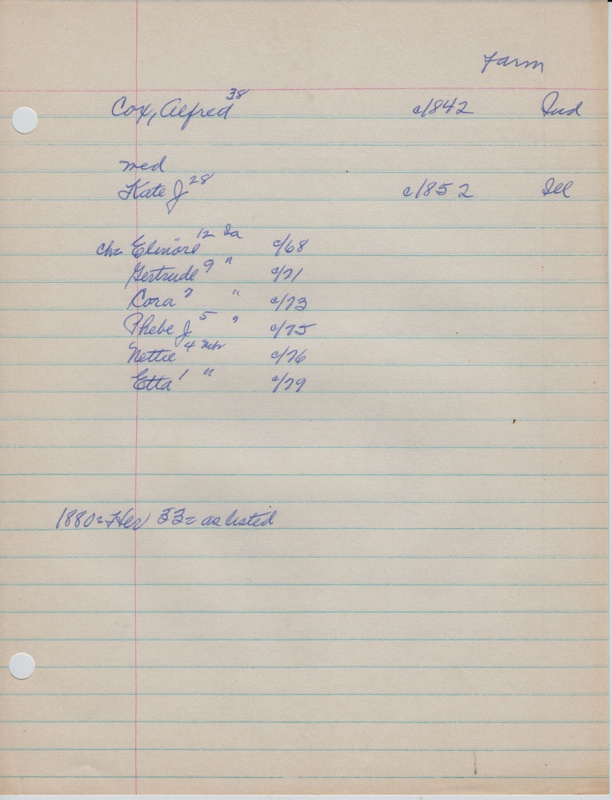 Farm
Cox, Alfred 38 c/1842 Ind
med
Kate J 28 c/1852 Ill
chn Elinore 12 Ia c/68
Gertrude 9 " c/71
Cora 7 " c/73
Phebe J 5 " c/75
Nettie 4 Nebr c/76
Etta 1 " c/79
1880= Her 33= as listed